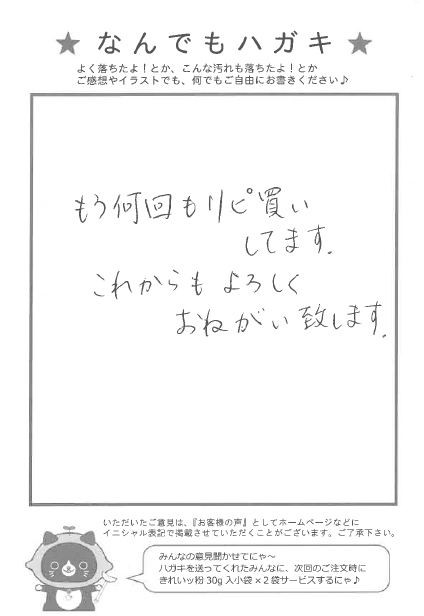 ★ なんでもハガキ ★
よく落ちたよ！とか、こんな汚れも落ちたよ！とか
ご感想やイラストでも、何でもご自由にお書きください♪
もう何回もリピ買い
してます.
これからもよろしく
おねがい致します.
いただいたご意見は、『お客様の声』としてホームページなどに
イニシャル表記で掲載させていただくことがございます。ご了承下さい。
みんなの意見聞かせてにゃ～
ハガキを送ってくれたみんなに、次回のご注文時に
きれいッ粉 30g 入小袋 × 2 袋サービスするにゃ♪